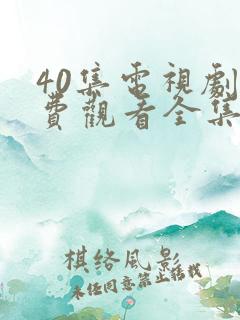 40集電視劇
費觀看全集
棋络風影
未经同意禁止转载